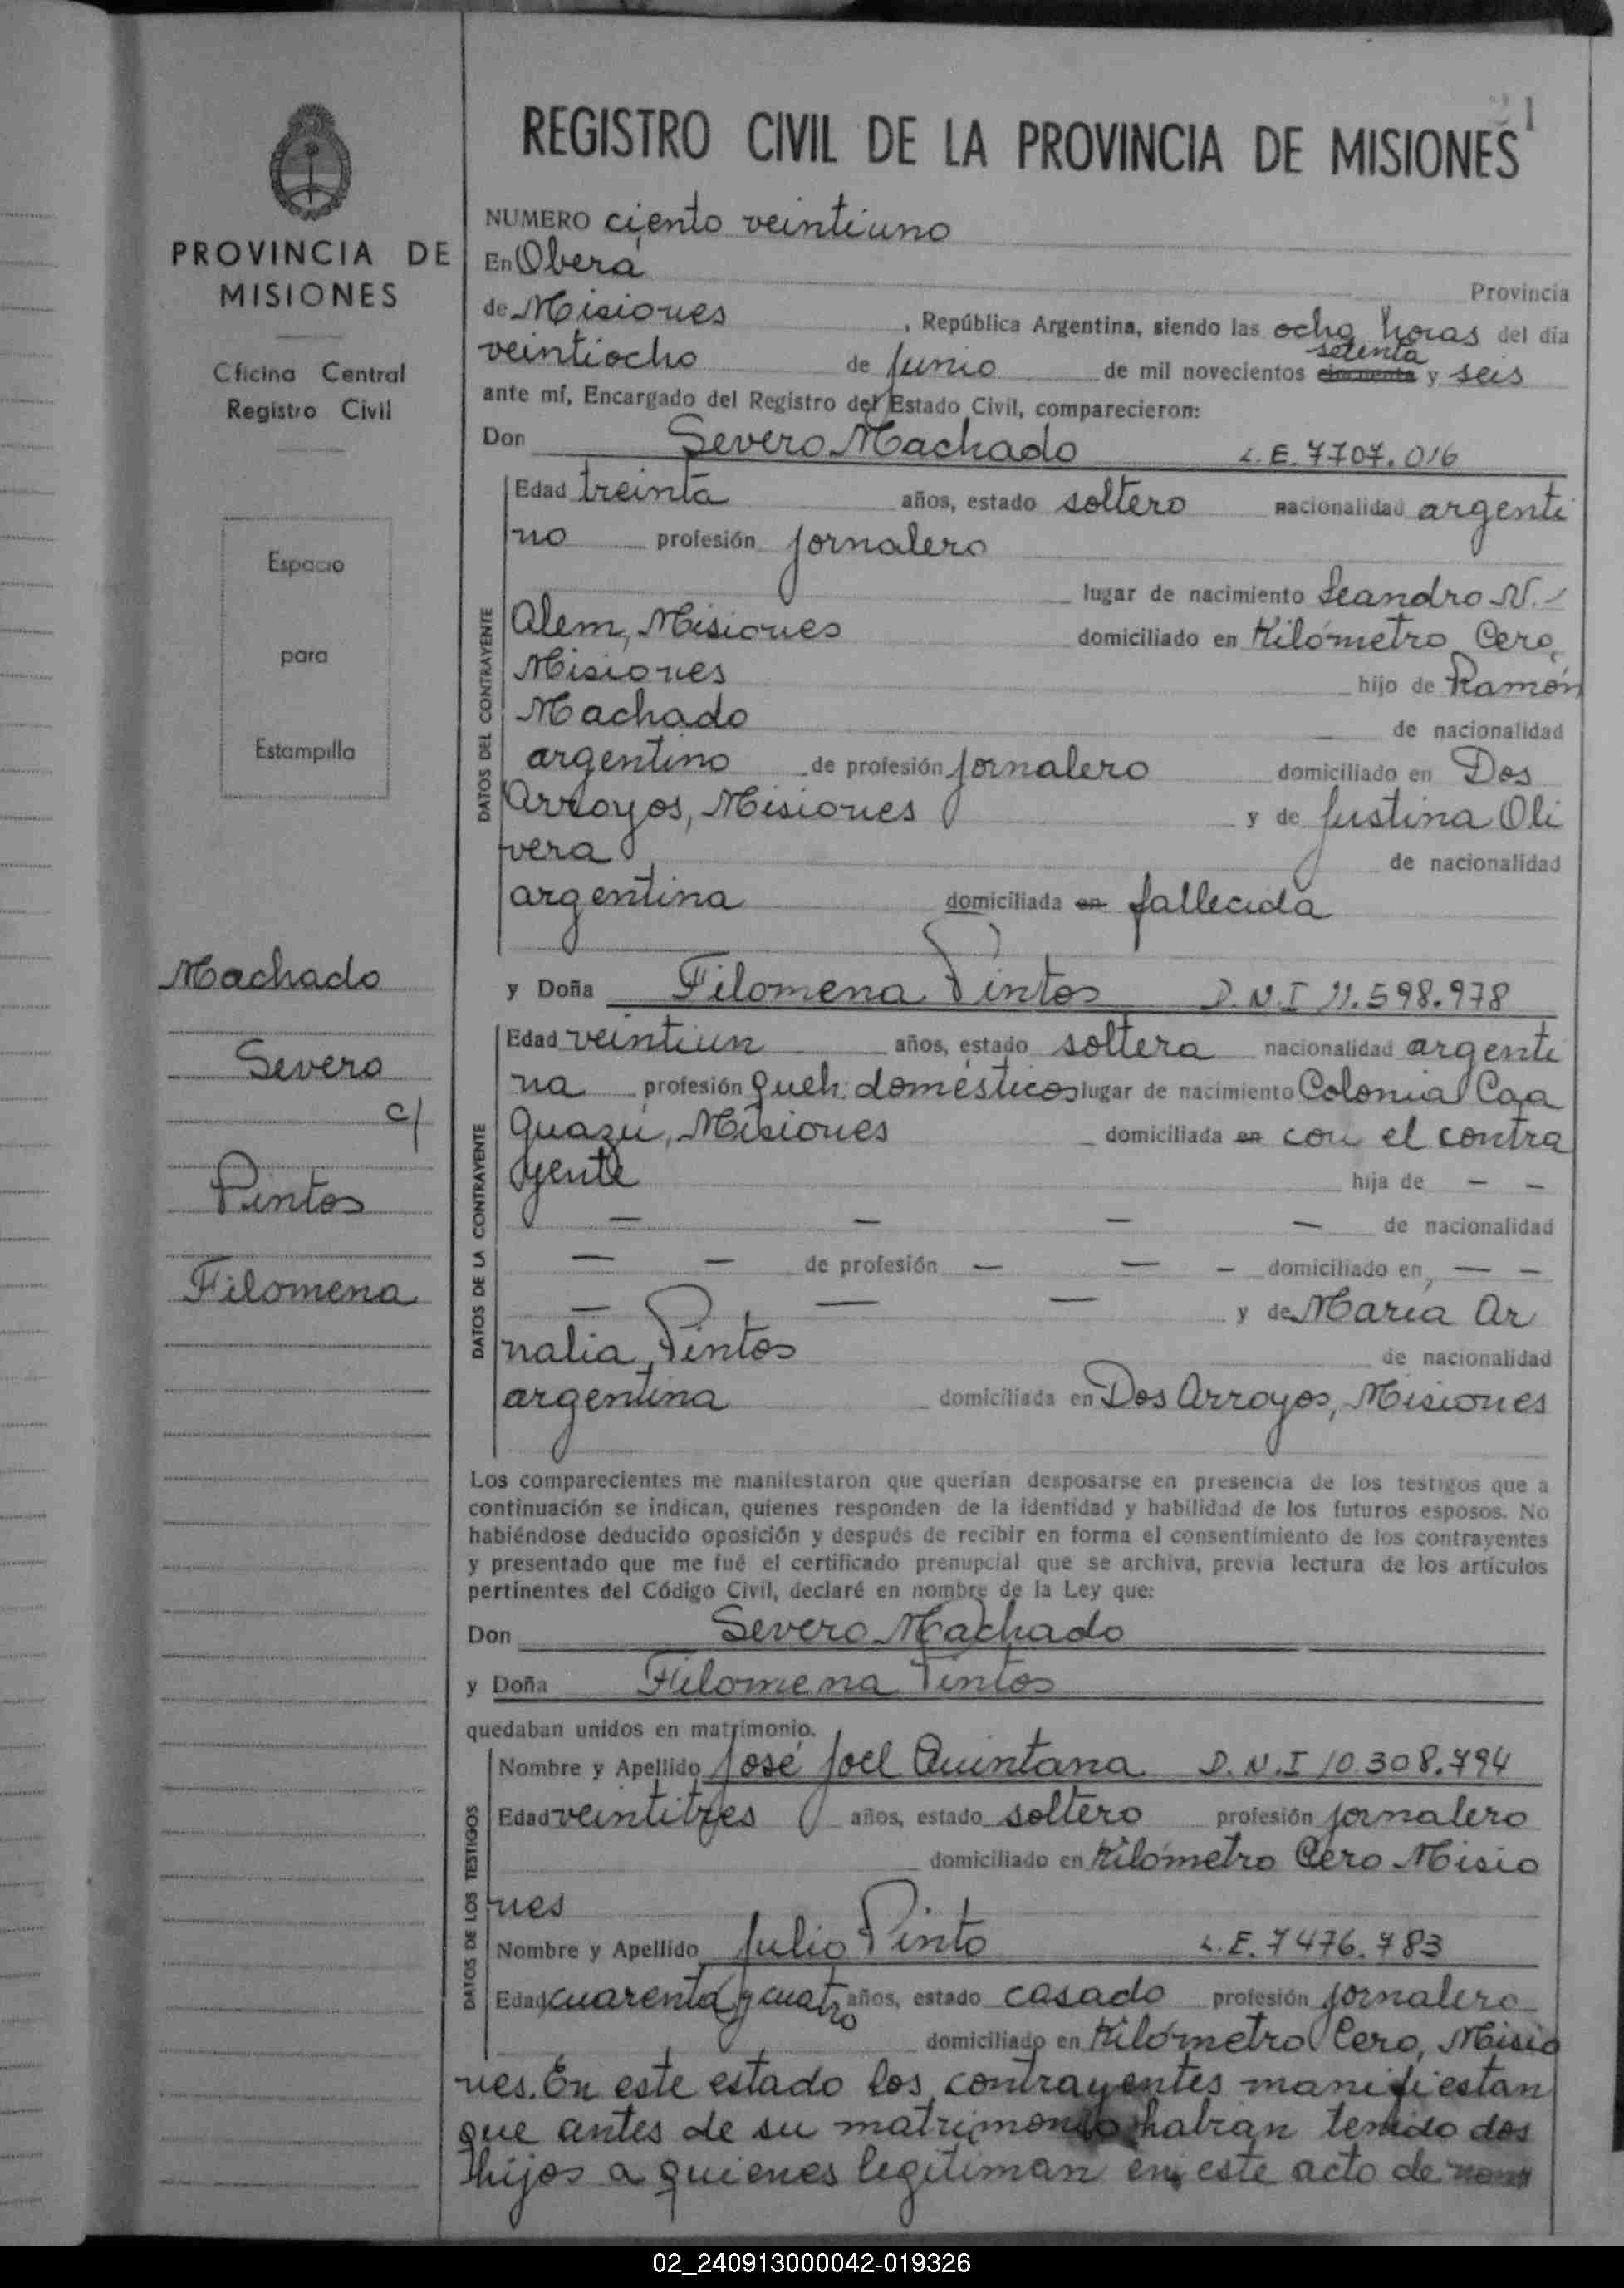 21
REGISTRO CIVIL DE LA PROVINCIA DE MISIONES
PROVINCIA DE
MISIONES
Oficina Central
Registro Civil
Espacio
para
Estampilla
Machado
Severo
c/
Pintos
Filomena
NUMERO ciento veintiuno
En Oberá Provincia
de Misiones, República Argentina, siendo las ocho horas del día
veintiocho de Junio de mil novecientos cincuenta setenta y seis
ante mí, Encargado del Registro del Estado Civil, comparecieron:
Don Severo Machado L.E. 7707.016
DATOS DEL CONTRAYENTE
Edad treinta años, estado soltero nacionalidad argenti
no profesión jornalero
lugar de nacimiento Leandro N.
Alem, Misiones domiciliado en Kilómetro Cero,
Misiones hijo de Ramón
Machado de nacionalidad
argentino de profesión jornalero domiciliado en Dos
Arroyos, Misiones y de Justina Oli
vera de nacionalidad
argentina domiciliada en fallecida
y Doña Filomena Pintos D.N.I 11.598.978
DATOS DE LA CONTRAYENTE
Edad veintiun años, estado soltera nacionalidad argenti
na profesión queh. domésticos lugar de nacimiento Colonia Caa
Guazú, Misiones domiciliada en con el contra
yente hija de — —
— — — — de nacionalidad
— — de profesión — — — domiciliado en — —
— — — y de María Ar
nalia Pintos de nacionalidad
argentina domiciliada en Dos Arroyos, Misiones
Los comparecientes me manifestaron que querían desposarse en presencia de los testigos que a
continuación se indican, quienes responden de la identidad y habilidad de los futuros esposos. No
habiéndose deducido oposición y después de recibir en forma el consentimiento de los contrayentes
y presentado que me fué el certificado prenupcial que se archiva, previa lectura de los artículos
pertinentes del Código Civil, declaré en nombre de la Ley que:
Don Severo Machado
y Doña Filomena Pintos
quedaban unidos en matrimonio.
DATOS DE LOS TESTIGOS
Nombre y Apellido José Joel Quintana D.N.I 10.308.794
Edad veintitres años, estado soltero profesión jornalero
domiciliado en Kilómetro Cero Misio
nes
Nombre y Apellido Julio Pinto L.E. 7476.783
Edad cuarenta y cuatro años, estado casado profesión jornalero
domiciliado en Kilómetro Cero, Misio
nes. En este estado los contrayentes manifiestan
que antes de su matrimonio habian tenido dos
hijos a quienes legitiman en este acto de
02_240913000042-019326